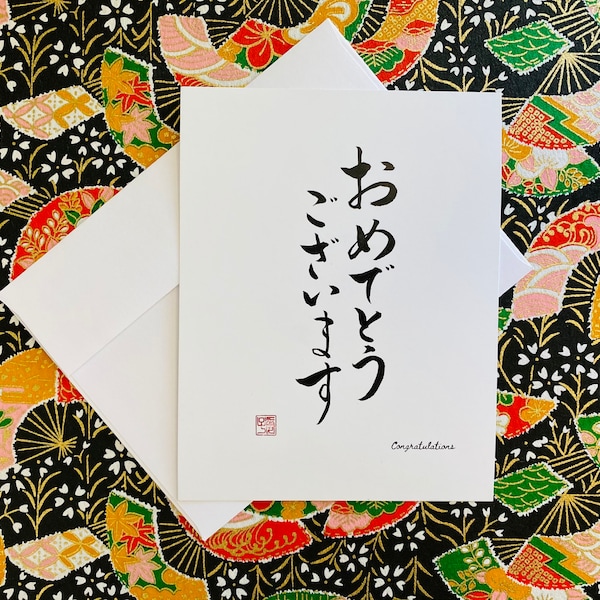 おめでとう
ございます
Congratulations